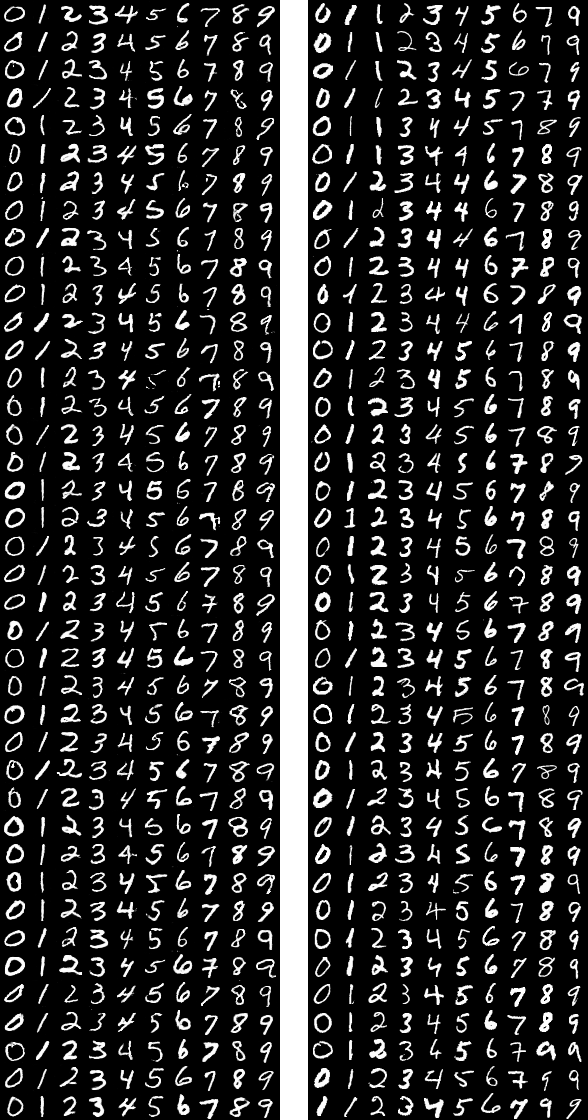 0 1 2 3 4 5 6 7 8 9
0 1 2 3 4 5 6 7 8 9
0 1 2 3 4 5 6 7 8 9
0 1 2 3 4 5 6 7 8 9
0 1 2 3 4 5 6 7 8 9
0 1 2 3 4 5 6 7 8 9
0 1 2 3 4 5 6 7 8 9
0 1 2 3 4 5 6 7 8 9
0 1 2 3 4 5 6 7 8 9
0 1 2 3 4 5 6 7 8 9
0 1 2 3 4 5 6 7 8 9
0 1 2 3 4 5 6 7 8 9
0 1 2 3 4 5 6 7 8 9
0 1 2 3 4 5 6 7 8 9
0 1 2 3 4 5 6 7 8 9
0 1 2 3 4 5 6 7 8 9
0 1 2 3 4 5 6 7 8 9
0 1 2 3 4 5 6 7 8 9
0 1 2 3 4 5 6 7 8 9
0 1 2 3 4 5 6 7 8 9
0 1 2 3 4 5 6 7 8 9
0 1 2 3 4 5 6 7 8 9
0 1 2 3 4 5 6 7 8 9
0 1 2 3 4 5 6 7 8 9
0 1 2 3 4 5 6 7 8 9
0 1 2 3 4 5 6 7 8 9
0 1 2 3 4 5 6 7 8 9
0 1 2 3 4 5 6 7 8 9
0 1 2 3 4 5 6 7 8 9
0 1 2 3 4 5 6 7 8 9
0 1 2 3 4 5 6 7 8 9
0 1 2 3 4 5 6 7 8 9
0 1 2 3 4 5 6 7 8 9
0 1 2 3 4 5 6 7 8 9
0 1 2 3 4 5 6 7 8 9
0 1 2 3 4 5 6 7 8 9
0 1 2 3 4 5 6 7 8 9
0 1 2 3 4 5 6 7 8 9
0 1 2 3 4 5 6 7 8 9
0 1 2 3 4 5 6 7 8 9
0 1 1 2 3 4 5 6 7 9
0 1 1 2 3 4 5 6 7 9
0 1 1 2 3 4 5 6 7 9
0 1 1 2 3 4 5 7 7 9
0 1 1 3 4 4 5 7 8 9
0 1 1 3 4 4 6 7 8 9
0 1 2 3 4 4 6 7 8 9
0 1 2 3 4 4 6 7 8 9
0 1 2 3 4 4 6 7 8 9
0 1 2 3 4 4 6 7 8 9
0 1 2 3 4 4 6 7 8 9
0 1 2 3 4 4 6 7 8 9
0 1 2 3 4 5 6 7 8 9
0 1 2 3 4 5 6 7 8 9
0 1 2 3 4 5 6 7 8 9
0 1 2 3 4 5 6 7 8 9
0 1 2 3 4 5 6 7 8 9
0 1 2 3 4 5 6 7 8 9
0 1 2 3 4 5 6 7 8 9
0 1 2 3 4 5 6 7 8 9
0 1 2 3 4 5 6 7 8 9
0 1 2 3 4 5 6 7 8 9
0 1 2 3 4 5 6 7 8 9
0 1 2 3 4 5 6 7 8 9
0 1 2 3 4 5 6 7 8 9
0 1 2 3 4 5 6 7 8 9
0 1 2 3 4 5 6 7 8 9
0 1 2 3 4 5 6 7 8 9
0 1 2 3 4 5 6 7 8 9
0 1 2 3 4 5 6 7 8 9
0 1 2 3 4 5 6 7 8 9
0 1 2 3 4 5 6 7 8 9
0 1 2 3 4 5 6 7 8 9
0 1 2 3 4 5 6 7 8 9
0 1 2 3 4 5 6 7 8 9
0 1 2 3 4 5 6 7 8 9
0 1 2 3 4 5 6 7 8 9
0 1 2 3 4 5 6 7 9 9
0 1 2 3 4 5 6 7 9 9
1 1 2 3 4 5 6 7 9 9